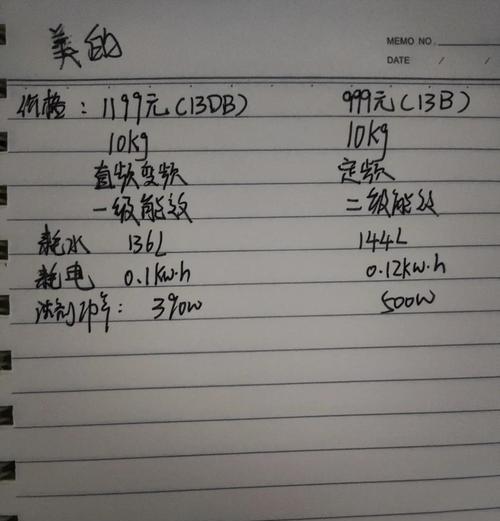 美的
MEMO NO.
DATE / /
价格：1199元(13DB) 999元(13B)
10Kg 10Kg
直频变频 定频
一级能效 二级能效
耗水 136L 144L
耗电 0.1Kw·h 0.12Kw·h
功率： 390W 500W